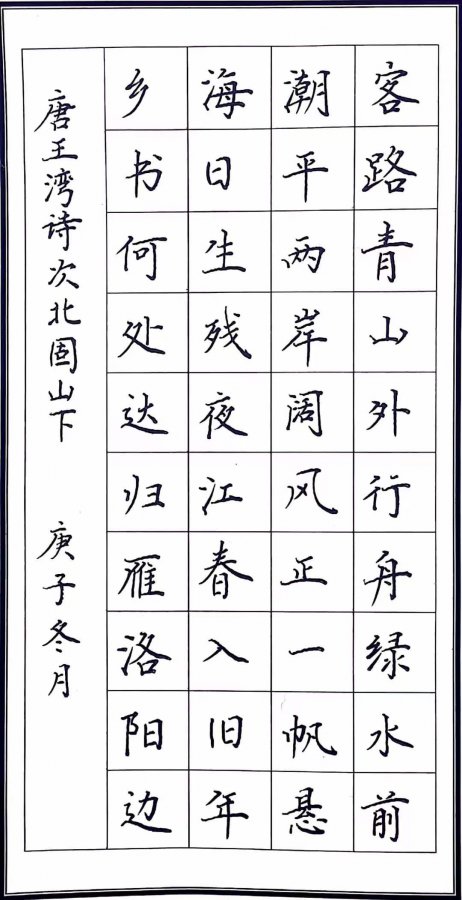 客路青山外行舟绿水前
潮平两岸阔风正一帆悬
海日生残夜江春入旧年
乡书何处达归雁洛阳边
唐王湾诗次北固山下 庚子冬月